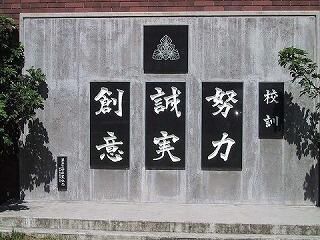 校訓
努力
誠実
創意